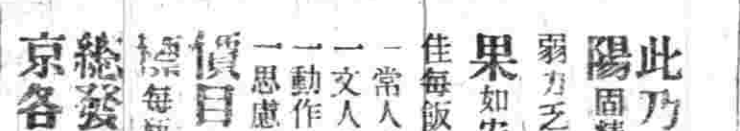 此乃
陽固精
弱力乏
果如
佳每飯
一常人
一文人
一動作
一思慮
價目
每
總發
京各